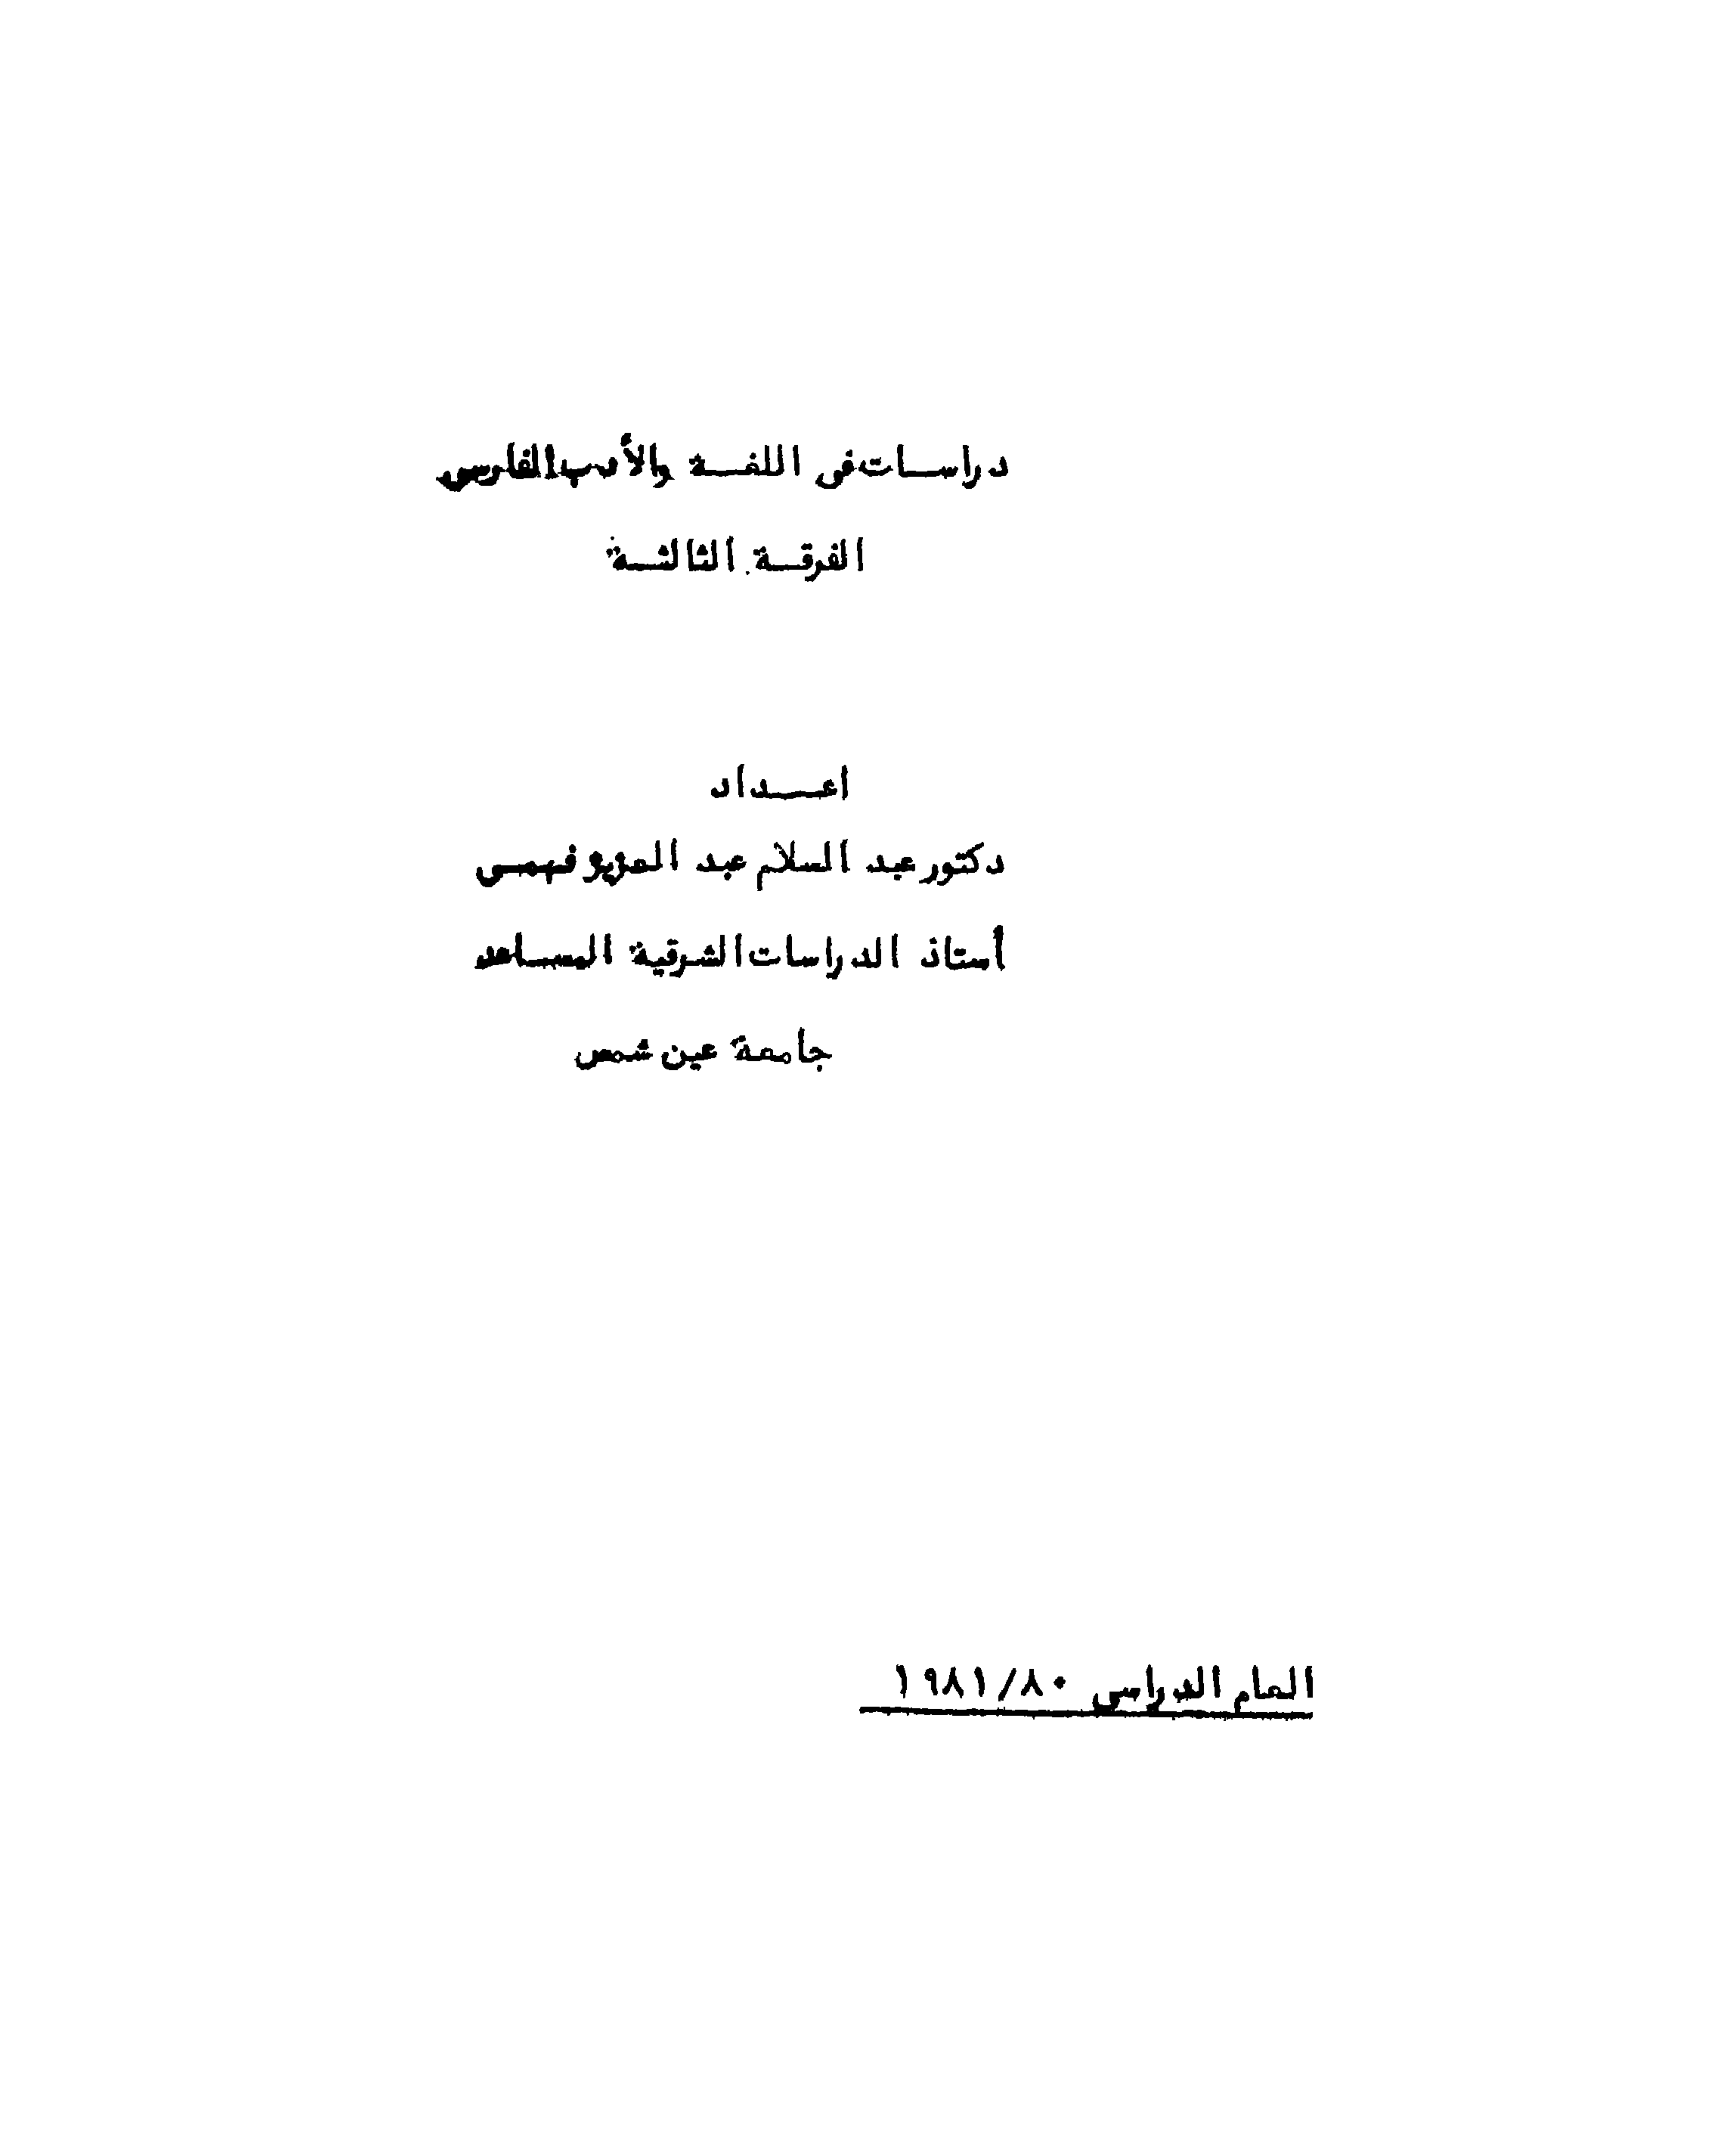 دراسات فى اللغة والأدب الفارسي
الفرقة الثالثة
اعداد
دكتور عبد السلام عبد العزيز فهمى
أستاذ الدراسات الشرقية المساعد
جامعة عين شمس
العام الدراسي ١٩٨١/٨٠